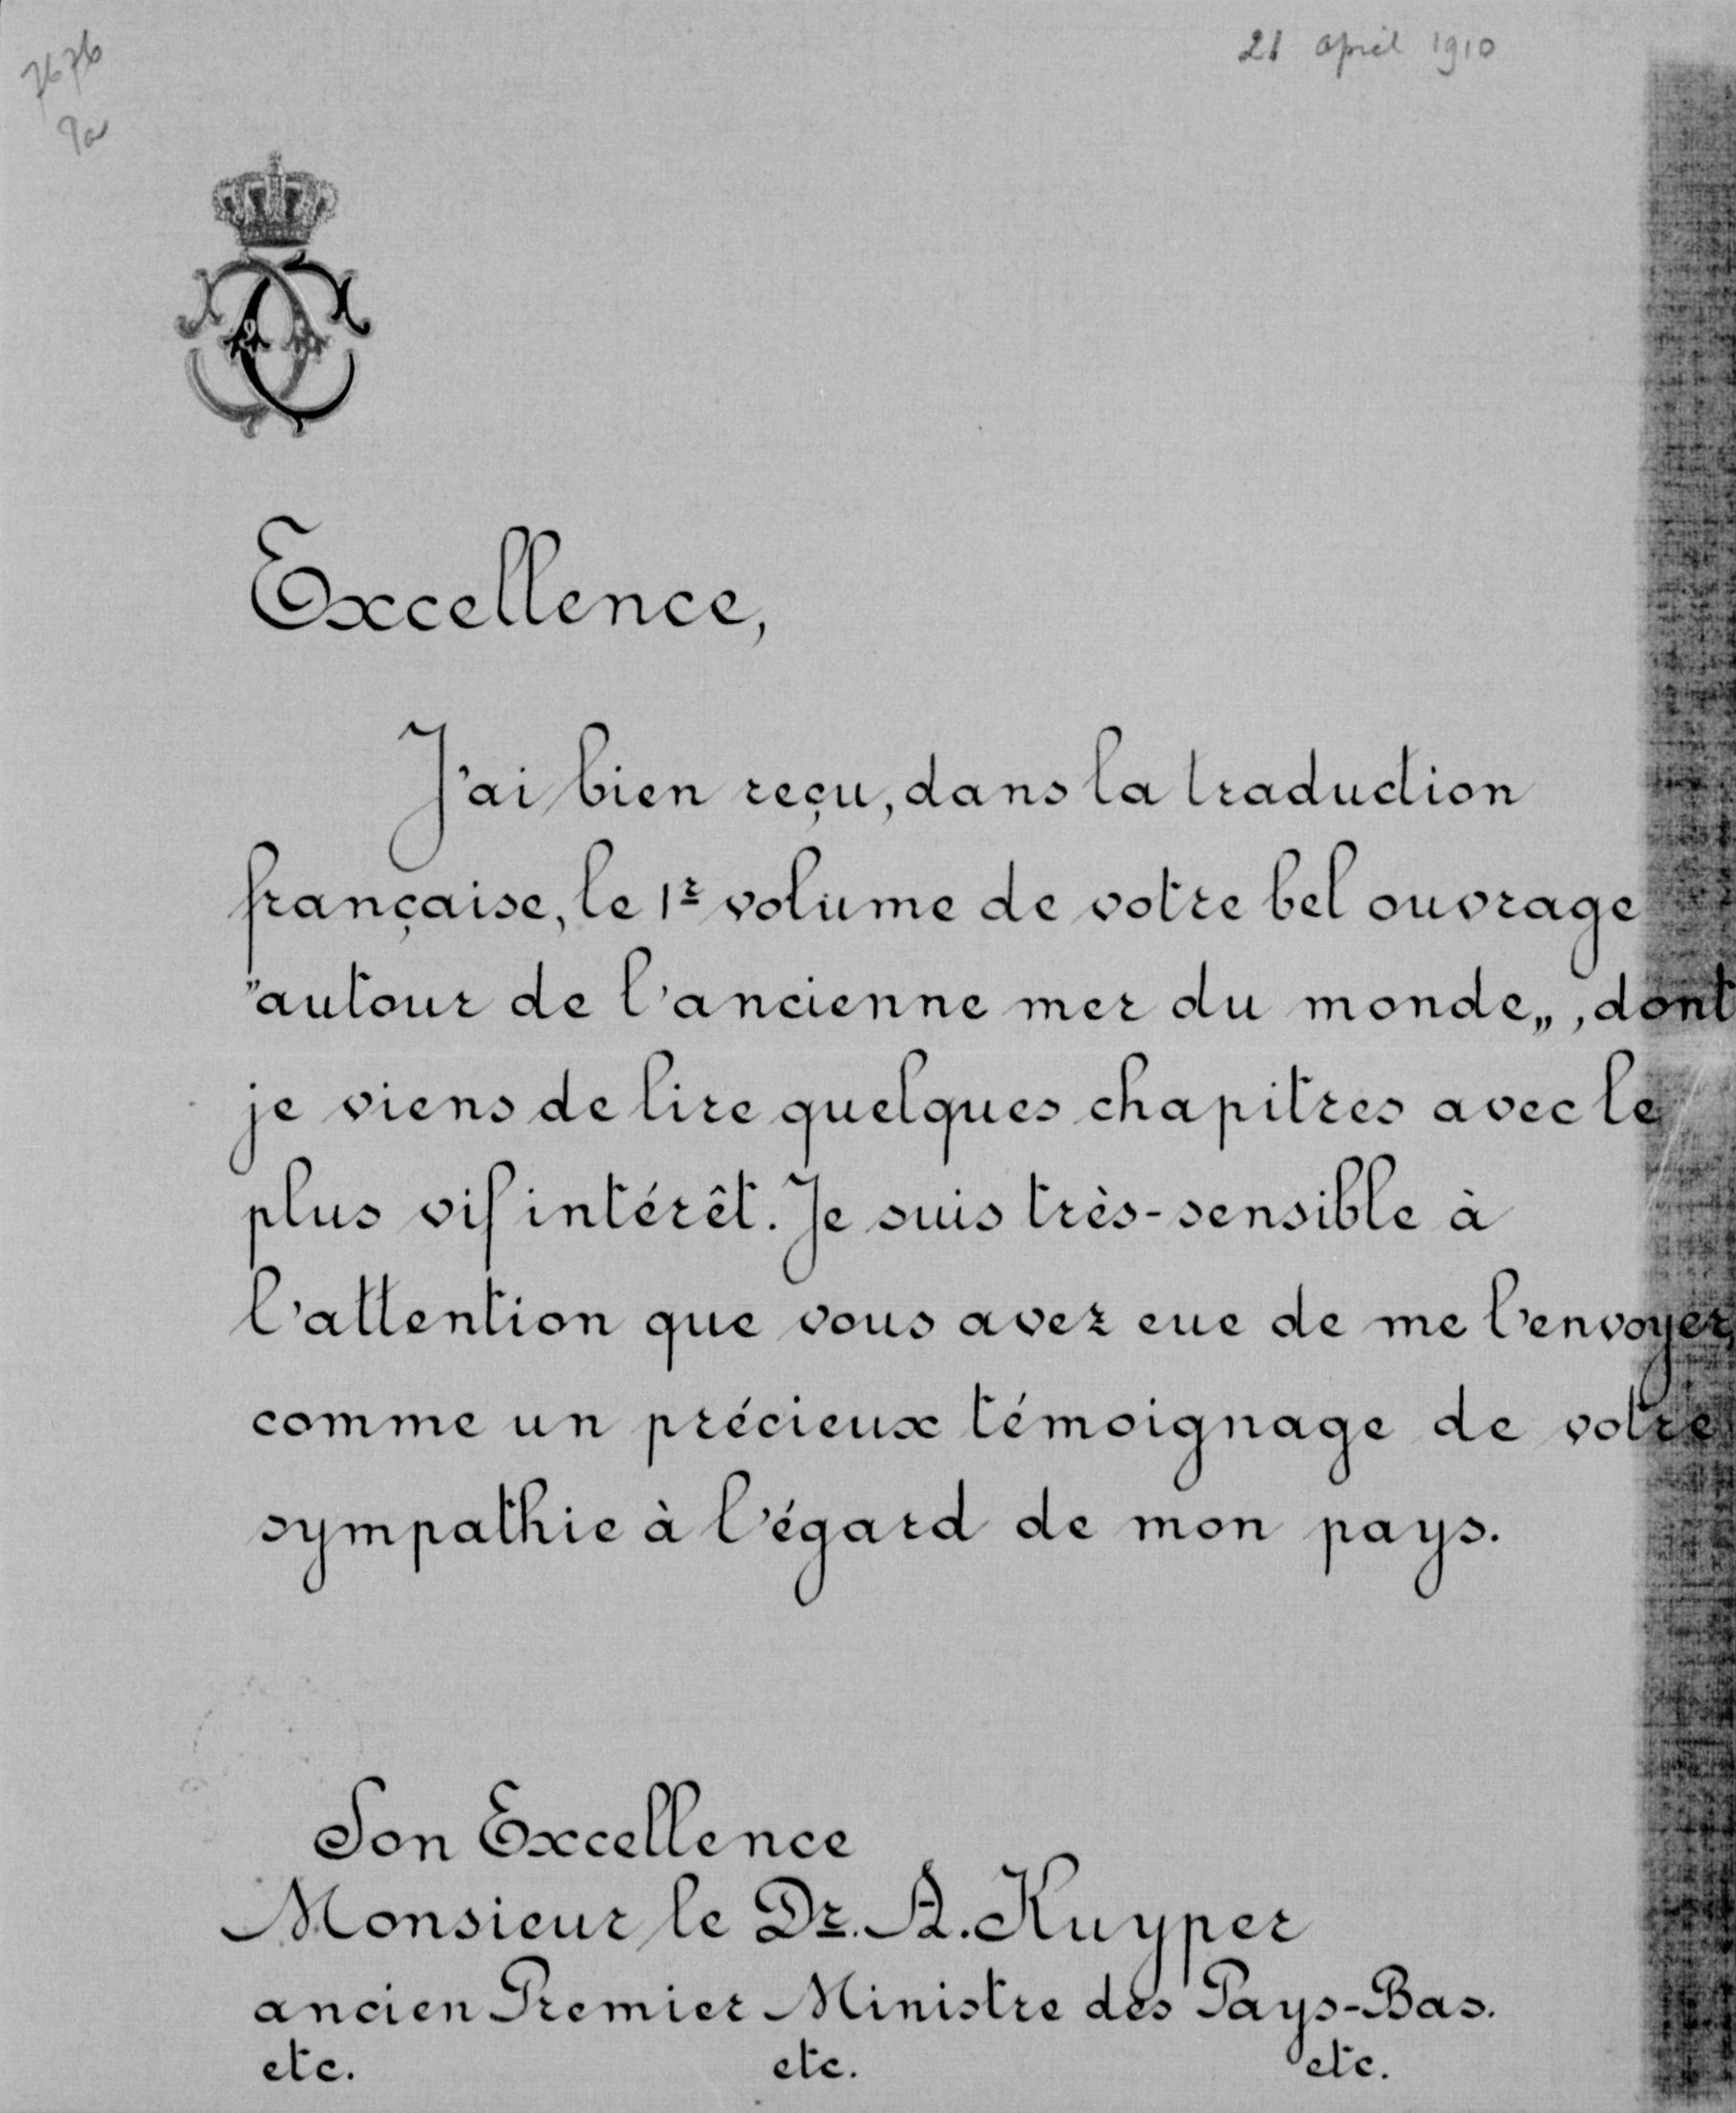 7676
21 april 1910
Excellence,
J'ai bien reçu, dans la traduction
française, le 1r volume de votre bel ouvrage
"autour de l'ancienne mer du monde„, dont
je viens de lire quelques chapitres avec le
plus vif intérêt. Je suis très-sensible à
l'attention que vous avez eue de me l'envoyer,
comme un précieux témoignage de votre
sympathie à l'égard de mon pays.
Son Excellence
Monsieur le Dr. A. Kuyper
ancien Premier Ministre des Pays-Bas.
etc. etc. etc.